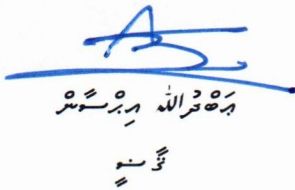 ޢަބްދުﷲ އިޙްސާން
ޤާޟީ